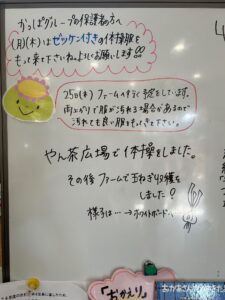 かっぱグループの保護者の方へ
(月)(木)はゼッケン付きの体操服を
もって来て下さいねよろしくお願いします!!
25日(木)ファームへ行く予定をしています。
雨上がりで服が汚れる場合があるので
汚れても良い服をもってきて下さい。
やん茶広場で体操をしました。
その後ファームで玉ねぎ収穫を
しました?
様子は…→ホワイトボードへ
「おかえり」